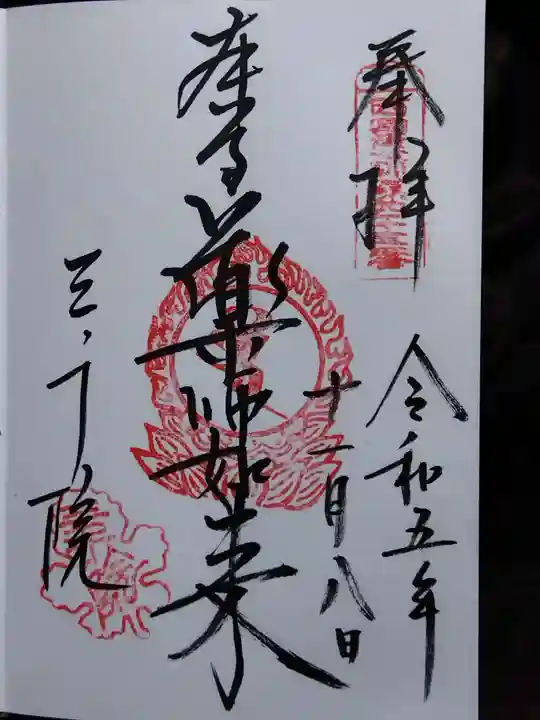 奉拝
令和五年
十一月八日
本尊薬師如来
三千院